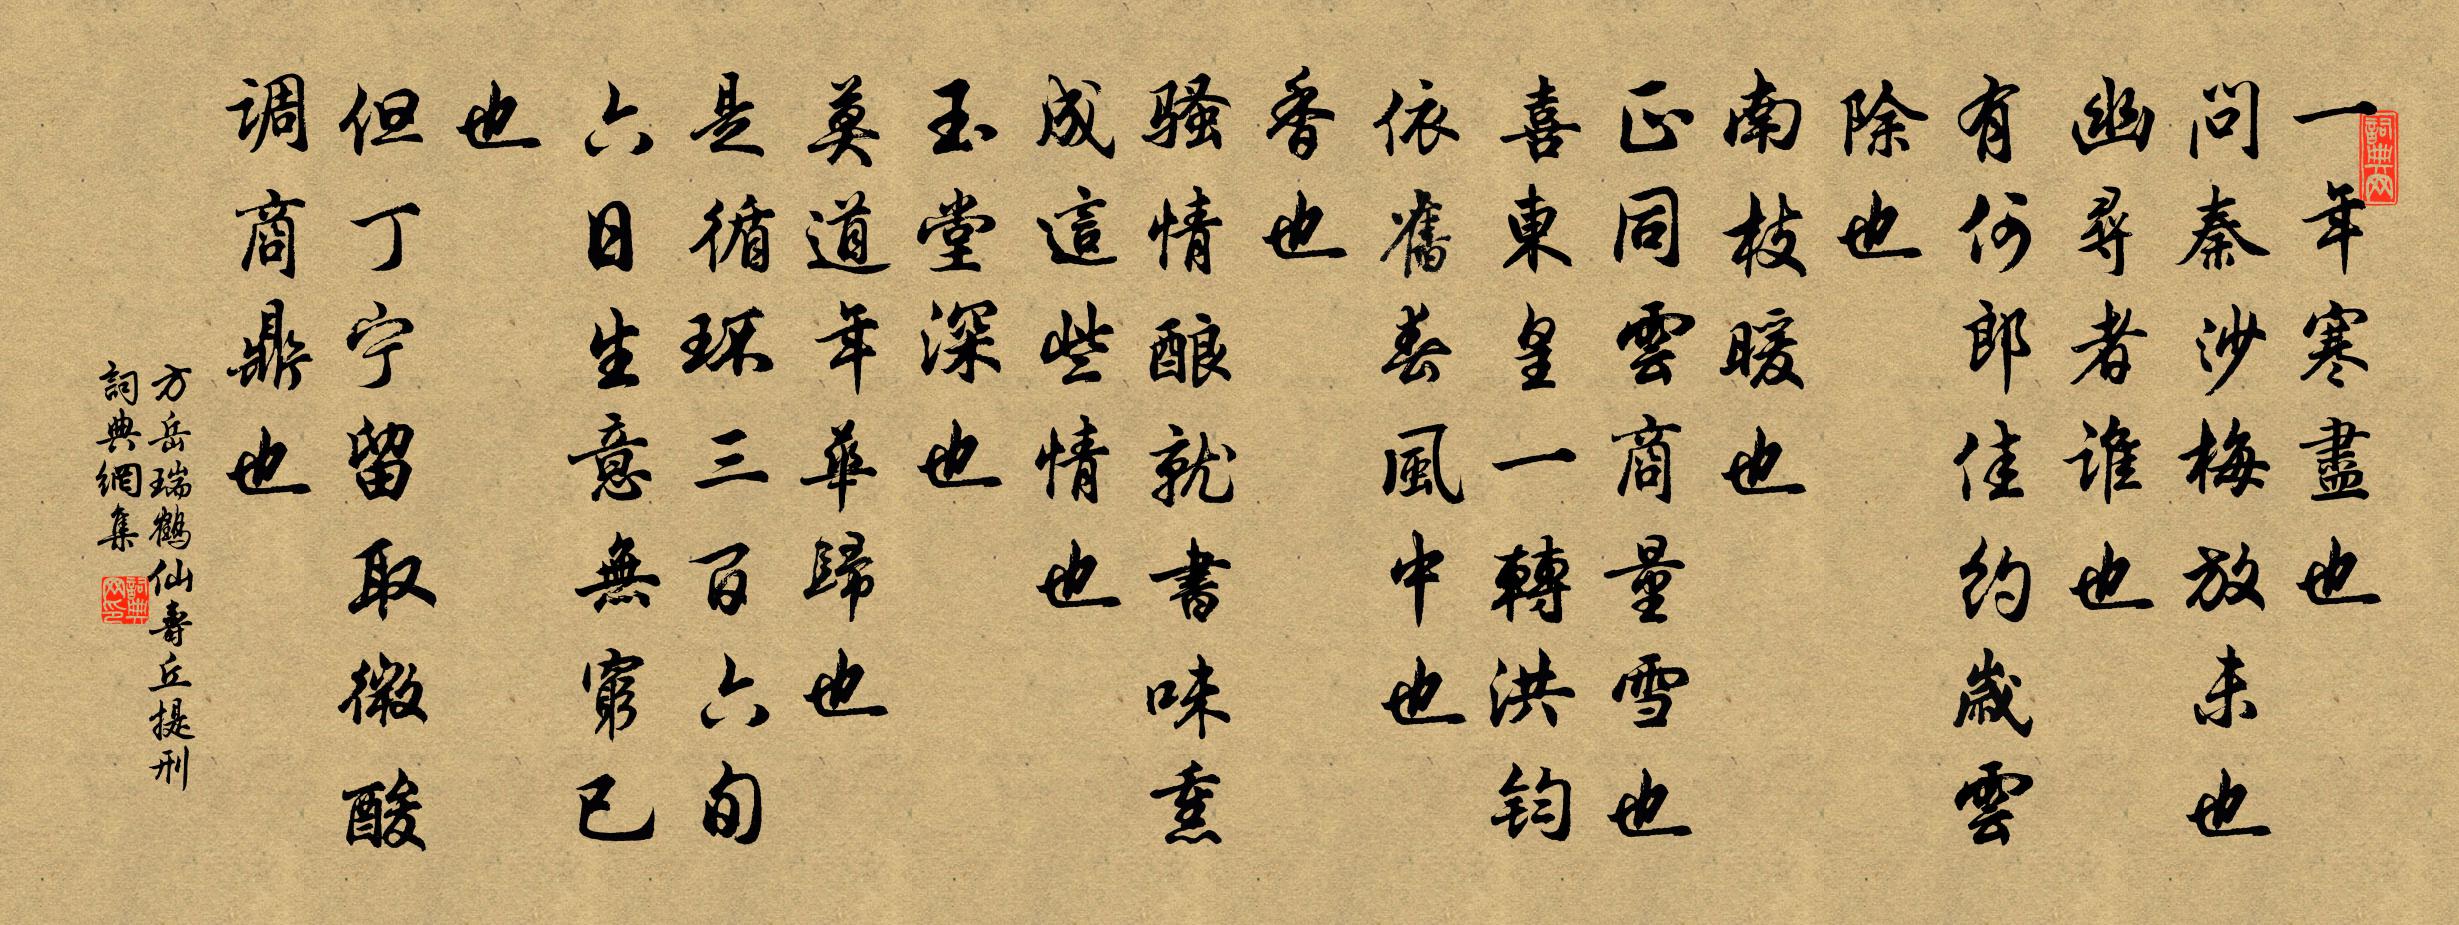 一年寒盡也
問秦沙梅放未也
幽尋者誰也
有何郎佳約歲雲
除也
南枝暖也
正同雲商量雪也
喜東皇一轉洪鈞
依舊春風中也
香也
騷情酿就書味熏
成這些情也
玉堂深也
莫道年華歸也
是循环三百六旬
六日生意無窮已
也
但丁宁留取微酸
调商鼎也
方岳瑞鶴仙壽丘提刑
詞典網集
詞典网
詞典网印